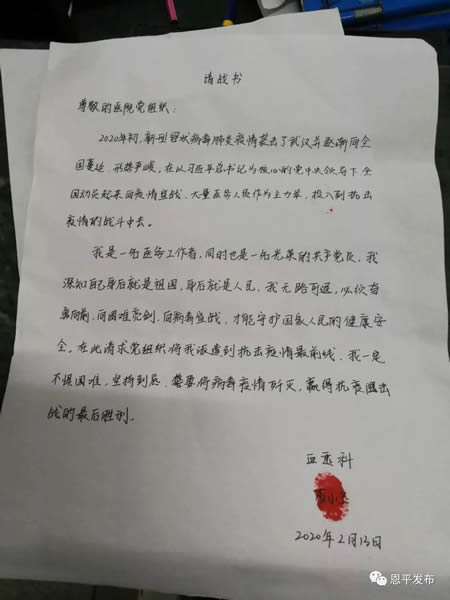 请战书
尊敬的医院党组织：
2020年初，新型冠状病毒肺炎疫情袭击了武汉并逐渐向全
国蔓延，形势严峻，在以习近平总书记为核心的党中央领导下全
国动员起来向疫情宣战，大量医务人员作为主力军，投入到抗击
疫情的战斗中去。
我是一名医务工作者，同时也是一名光荣的共产党员，我
深知自己身后就是祖国，身后就是人民，我无路可退，必须奋
勇向前，向困难亮剑，向病毒宣战，才能守护国家人民的健康安
全。在此请求党组织将我派遣到抗击疫情最前线，我一定
不惧困难，坚持到底，誓要将病毒疫情歼灭，赢得抗疫阻击
战的最后胜利。
血透科
2020年2月13日
恩平发布